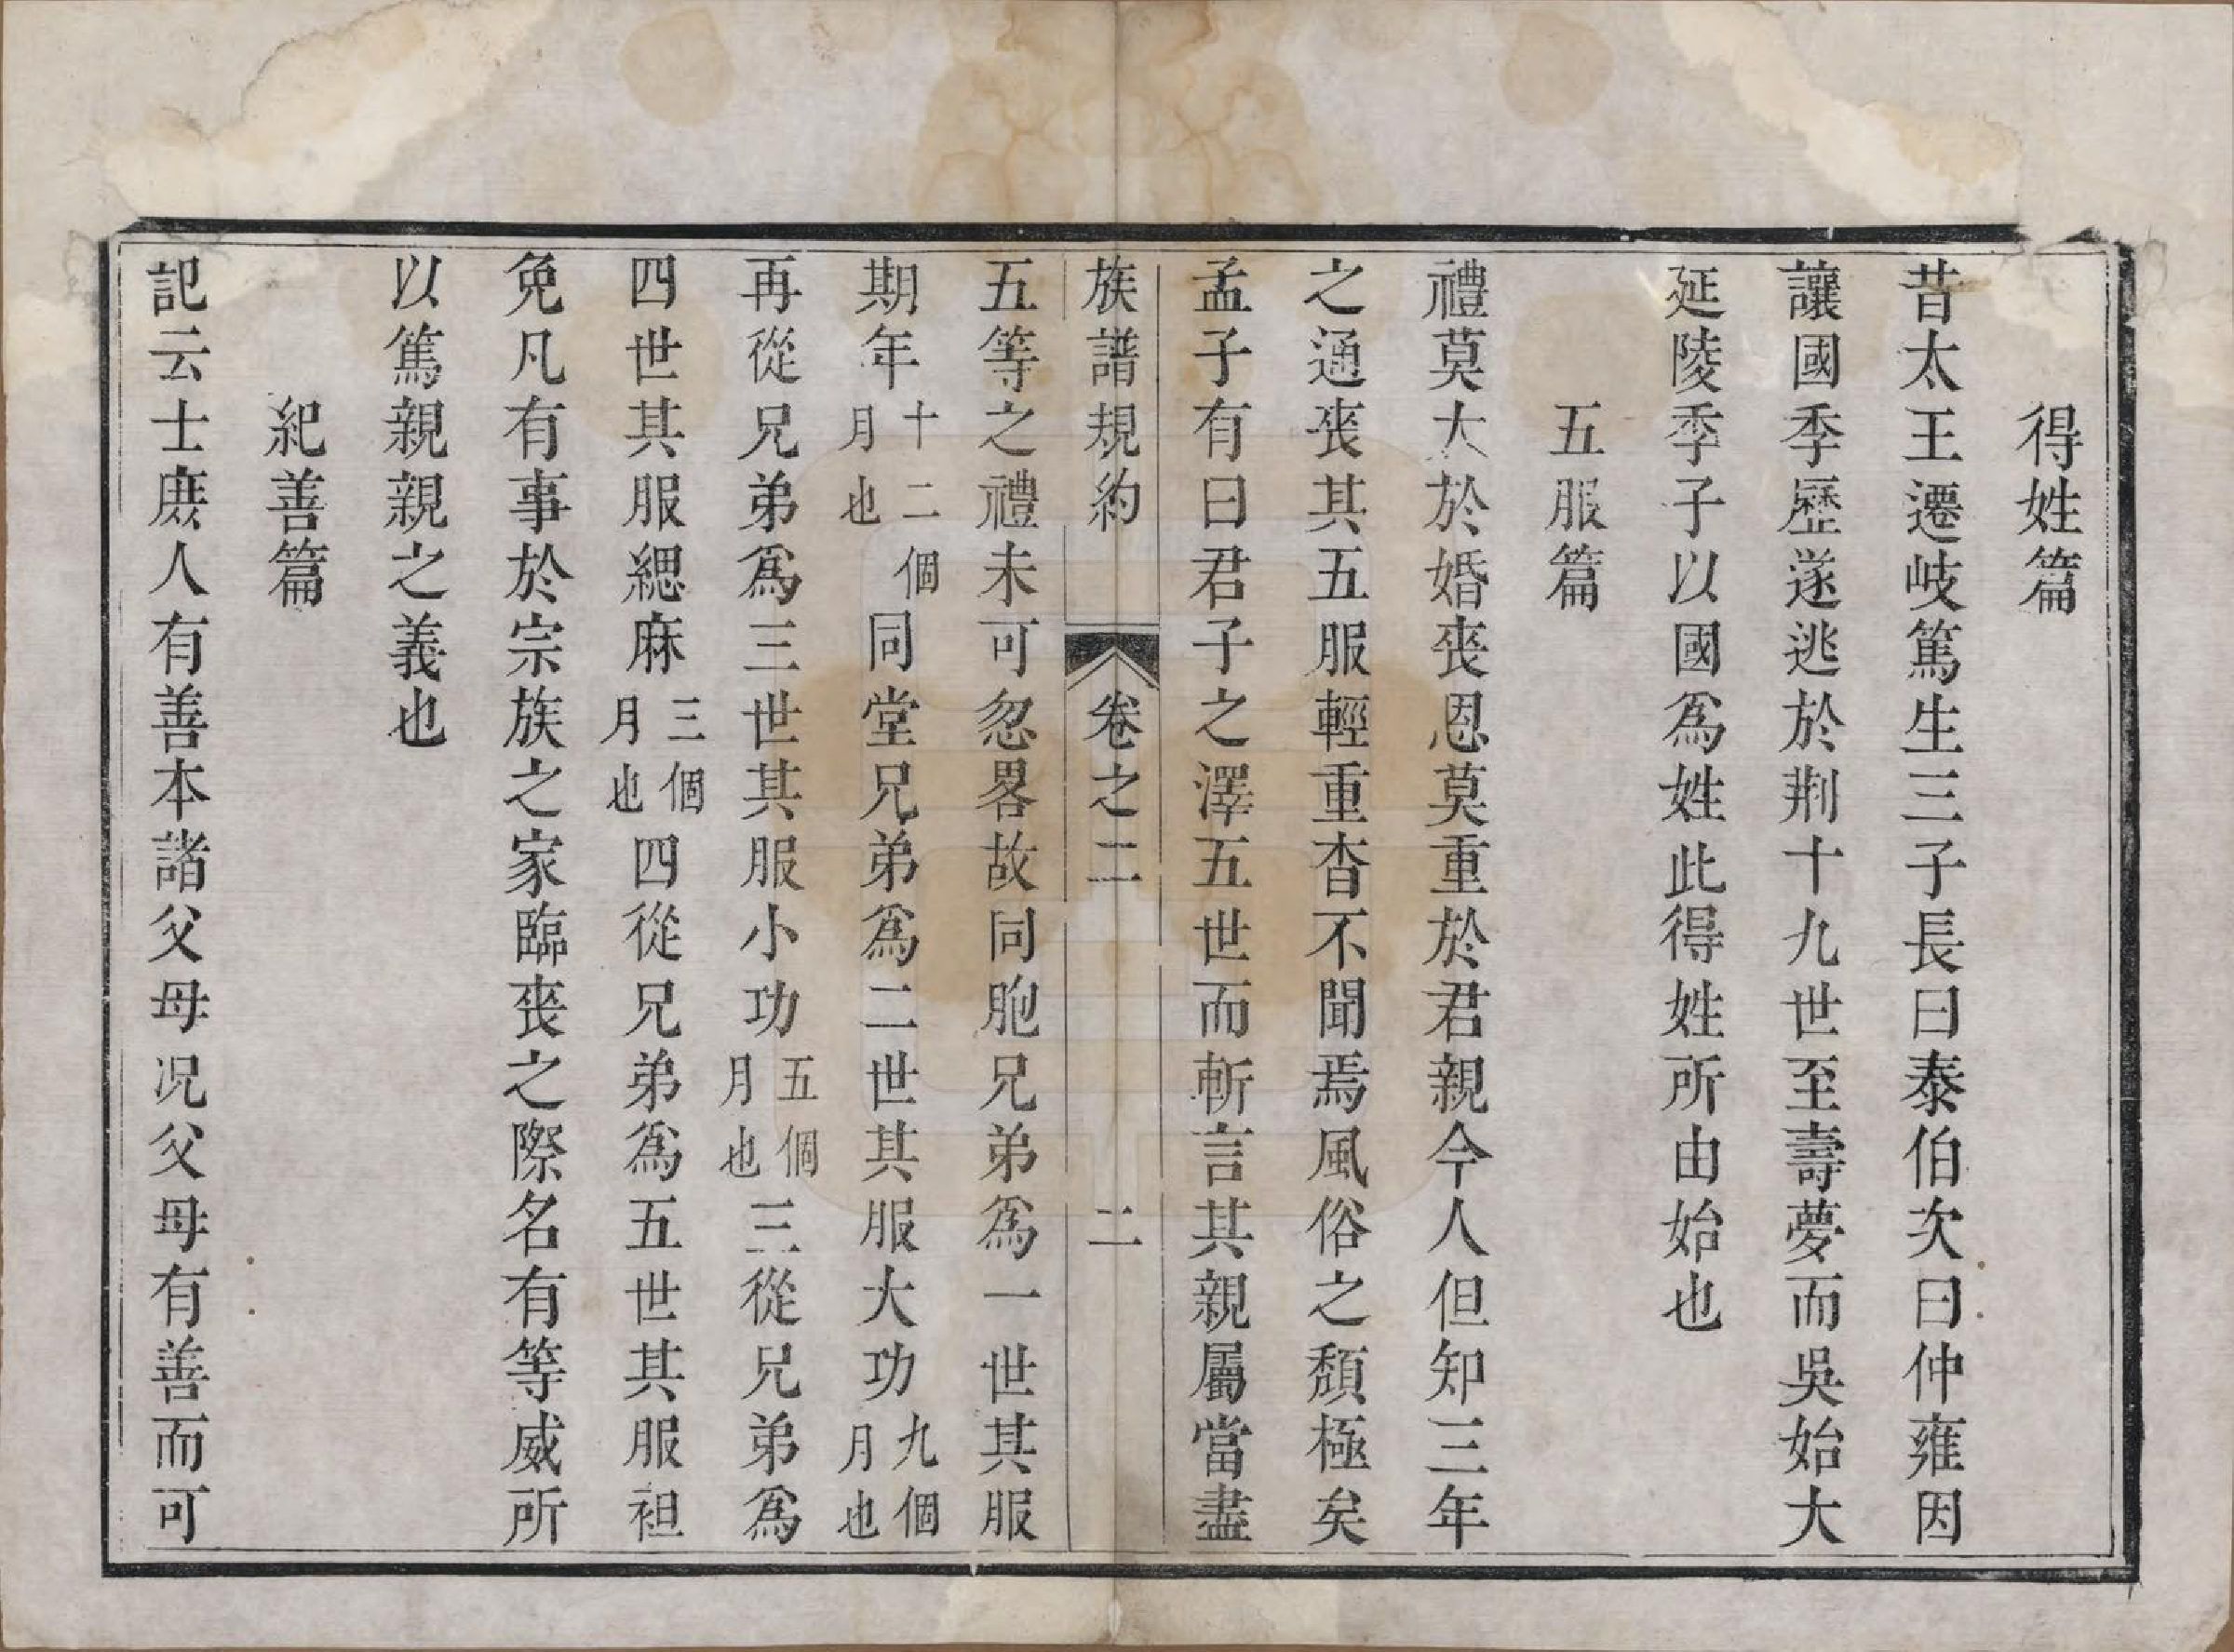 得姓篇
昔太王遷岐篤生三子長曰泰伯次曰仲雍因
讓國季歷遂逃於荆十九世至壽夢而吳始大
延陵季子以國爲姓此得姓所由始也
五服篇
禮莫大於婚丧恩莫重於君親今人但知三年
之通丧其五服輕重杳不聞焉風俗之頽極矣
孟子有曰君子之澤五世而斬言其親屬當盡
族譜規約 卷之二 二
五等之禮未可忽畧故同胞兄弟爲一世其服
期年十二個月也同堂兄弟爲二世其服大功九個月也
再從兄弟爲三世其服小功五個月也三從兄弟爲
四世其服緦麻三個月也四從兄弟爲五世其服袒
免凡有事於宗族之家臨丧之際名有等威所
以篤親親之義也
紀善篇
記云士庶人有善本諸父母况父母有善而可